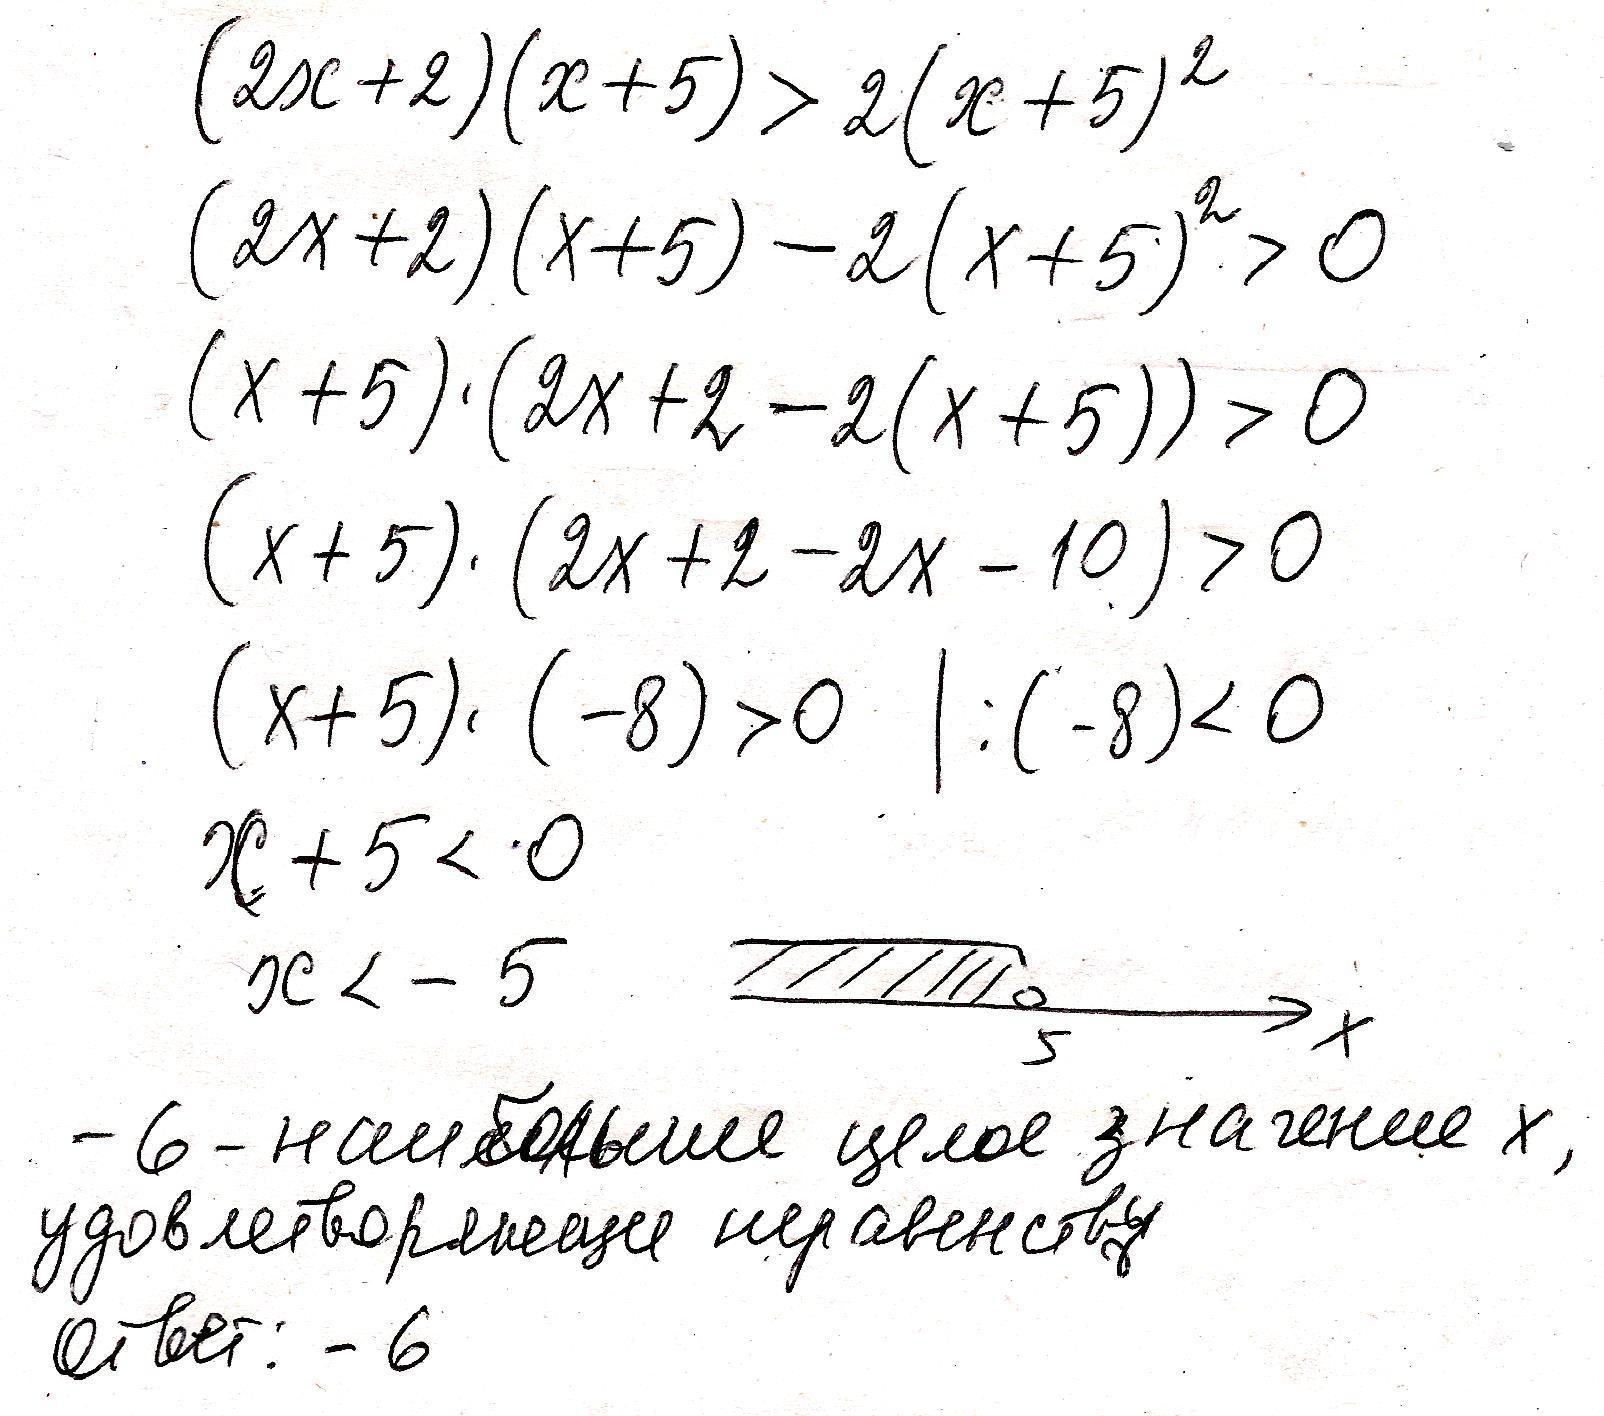 (2x+2)(x+5)>2(x+5)²
(2x+2)(x+5)-2(x+5)²>0
(x+5)·(2x+2-2(x+5))>0
(x+5)·(2x+2-2x-10)>0
(x+5)·(-8)>0 |:(-8)<0
x+5<0
x<-5
5 x
-6-наибольшее целое значение x,
удовлетворяющее неравенству
Ответ: -6